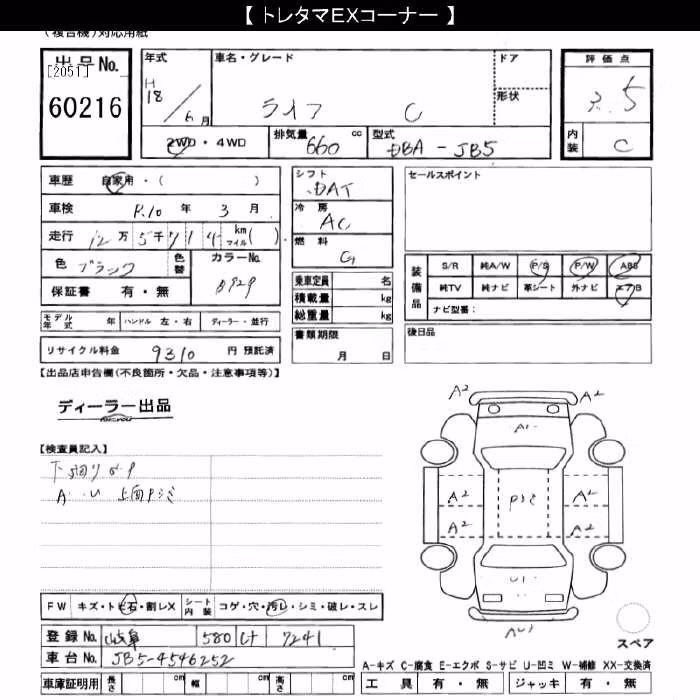 【 トレタマEXコーナー 】
(複合機)対応用紙
出品No.
[2051]
60216
年式 H18/6月
車名・グレード ライフ C
ドア
形状
評価点 3.5
内装 C
2WD・4WD
排気量 660 cc
型式 DBA-JB5
車歴 自家用・( )
車検 R.10年 3月
走行 12万5千714 km マイル( )
色 ブラック 色替 カラーNo. B92P
保証書 有・無
モデル年式 年 ハンドル 左・右 ディーラー・並行
リサイクル料金 9310 円 預託済
シフト DAT
冷房 AC
燃料 G
乗車定員 名
積載量 kg
総重量 kg
書類期限
月 日
セールスポイント
装備品
S/R 純A/W P/S P/W ABS
純TV 純ナビ 革シート 外ナビ エアB
ナビ型番:
後日品
【出品店申告欄(不良箇所・欠品・注意事項等)】
ディーラー出品
【検査員記入】
下廻りサP
A・U 上面Pシミ
A2 A2
A1
A2 Pシミ A2
A2 A2
U1
AU1
スペア
FW キズ・トビ石・割レX シート内装 コゲ・穴・汚レ・シミ・破レ・スレ
登録No. 岐阜 580 け 7241
車台No. JB5-4546252
車庫証明用 長さ cm 幅 cm 高さ cm
A-キズ C-腐食 E-エクボ S-サビ U-凹ミ W-補修 XX-交換済
工具 有・無 ジャッキ 有・無